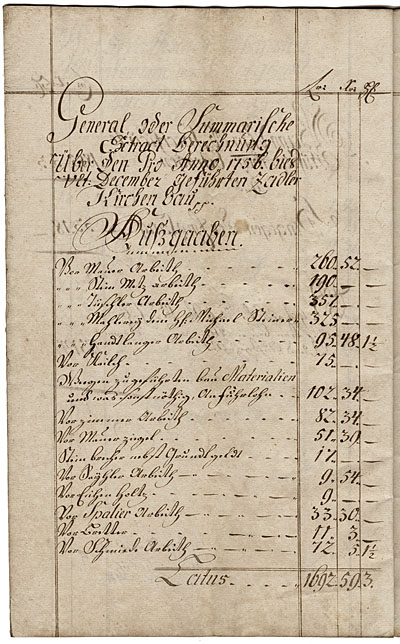 General oder Summarische
Extract Berechnung
Über den pro Anno 1756. bies
ult. December geführten Zadler
Kirchen Bau
Außgaaben.
Vor Maurer Arbeith 260. 52. —
" " " Stein Metz Arbeith 190. — —
" " " Tischler Arbeith 357. — —
" " " 325 — —
Handlanger Arbeith 95. 48. 1½
Vor 15. — —
Wegen zugeführten Bau Materialien
und was sonst nöthig, An Fuhrlohn 102. 34. —
Vor Zimmer Arbeith 82. 34. —
Vor Mauer Ziegel 51. 39. —
Stein brecher nebst Grundt geldt 17. — —
Vor Arbeith 9. 54. —
Vor Eichen Holtz 9. — —
Vor Spalier Arbeith 33. 30. —
Vor Bretter 11. 3. —
Vor Schmiede Arbeith 72. 5. 1½
Latus 1692. 59. 3.